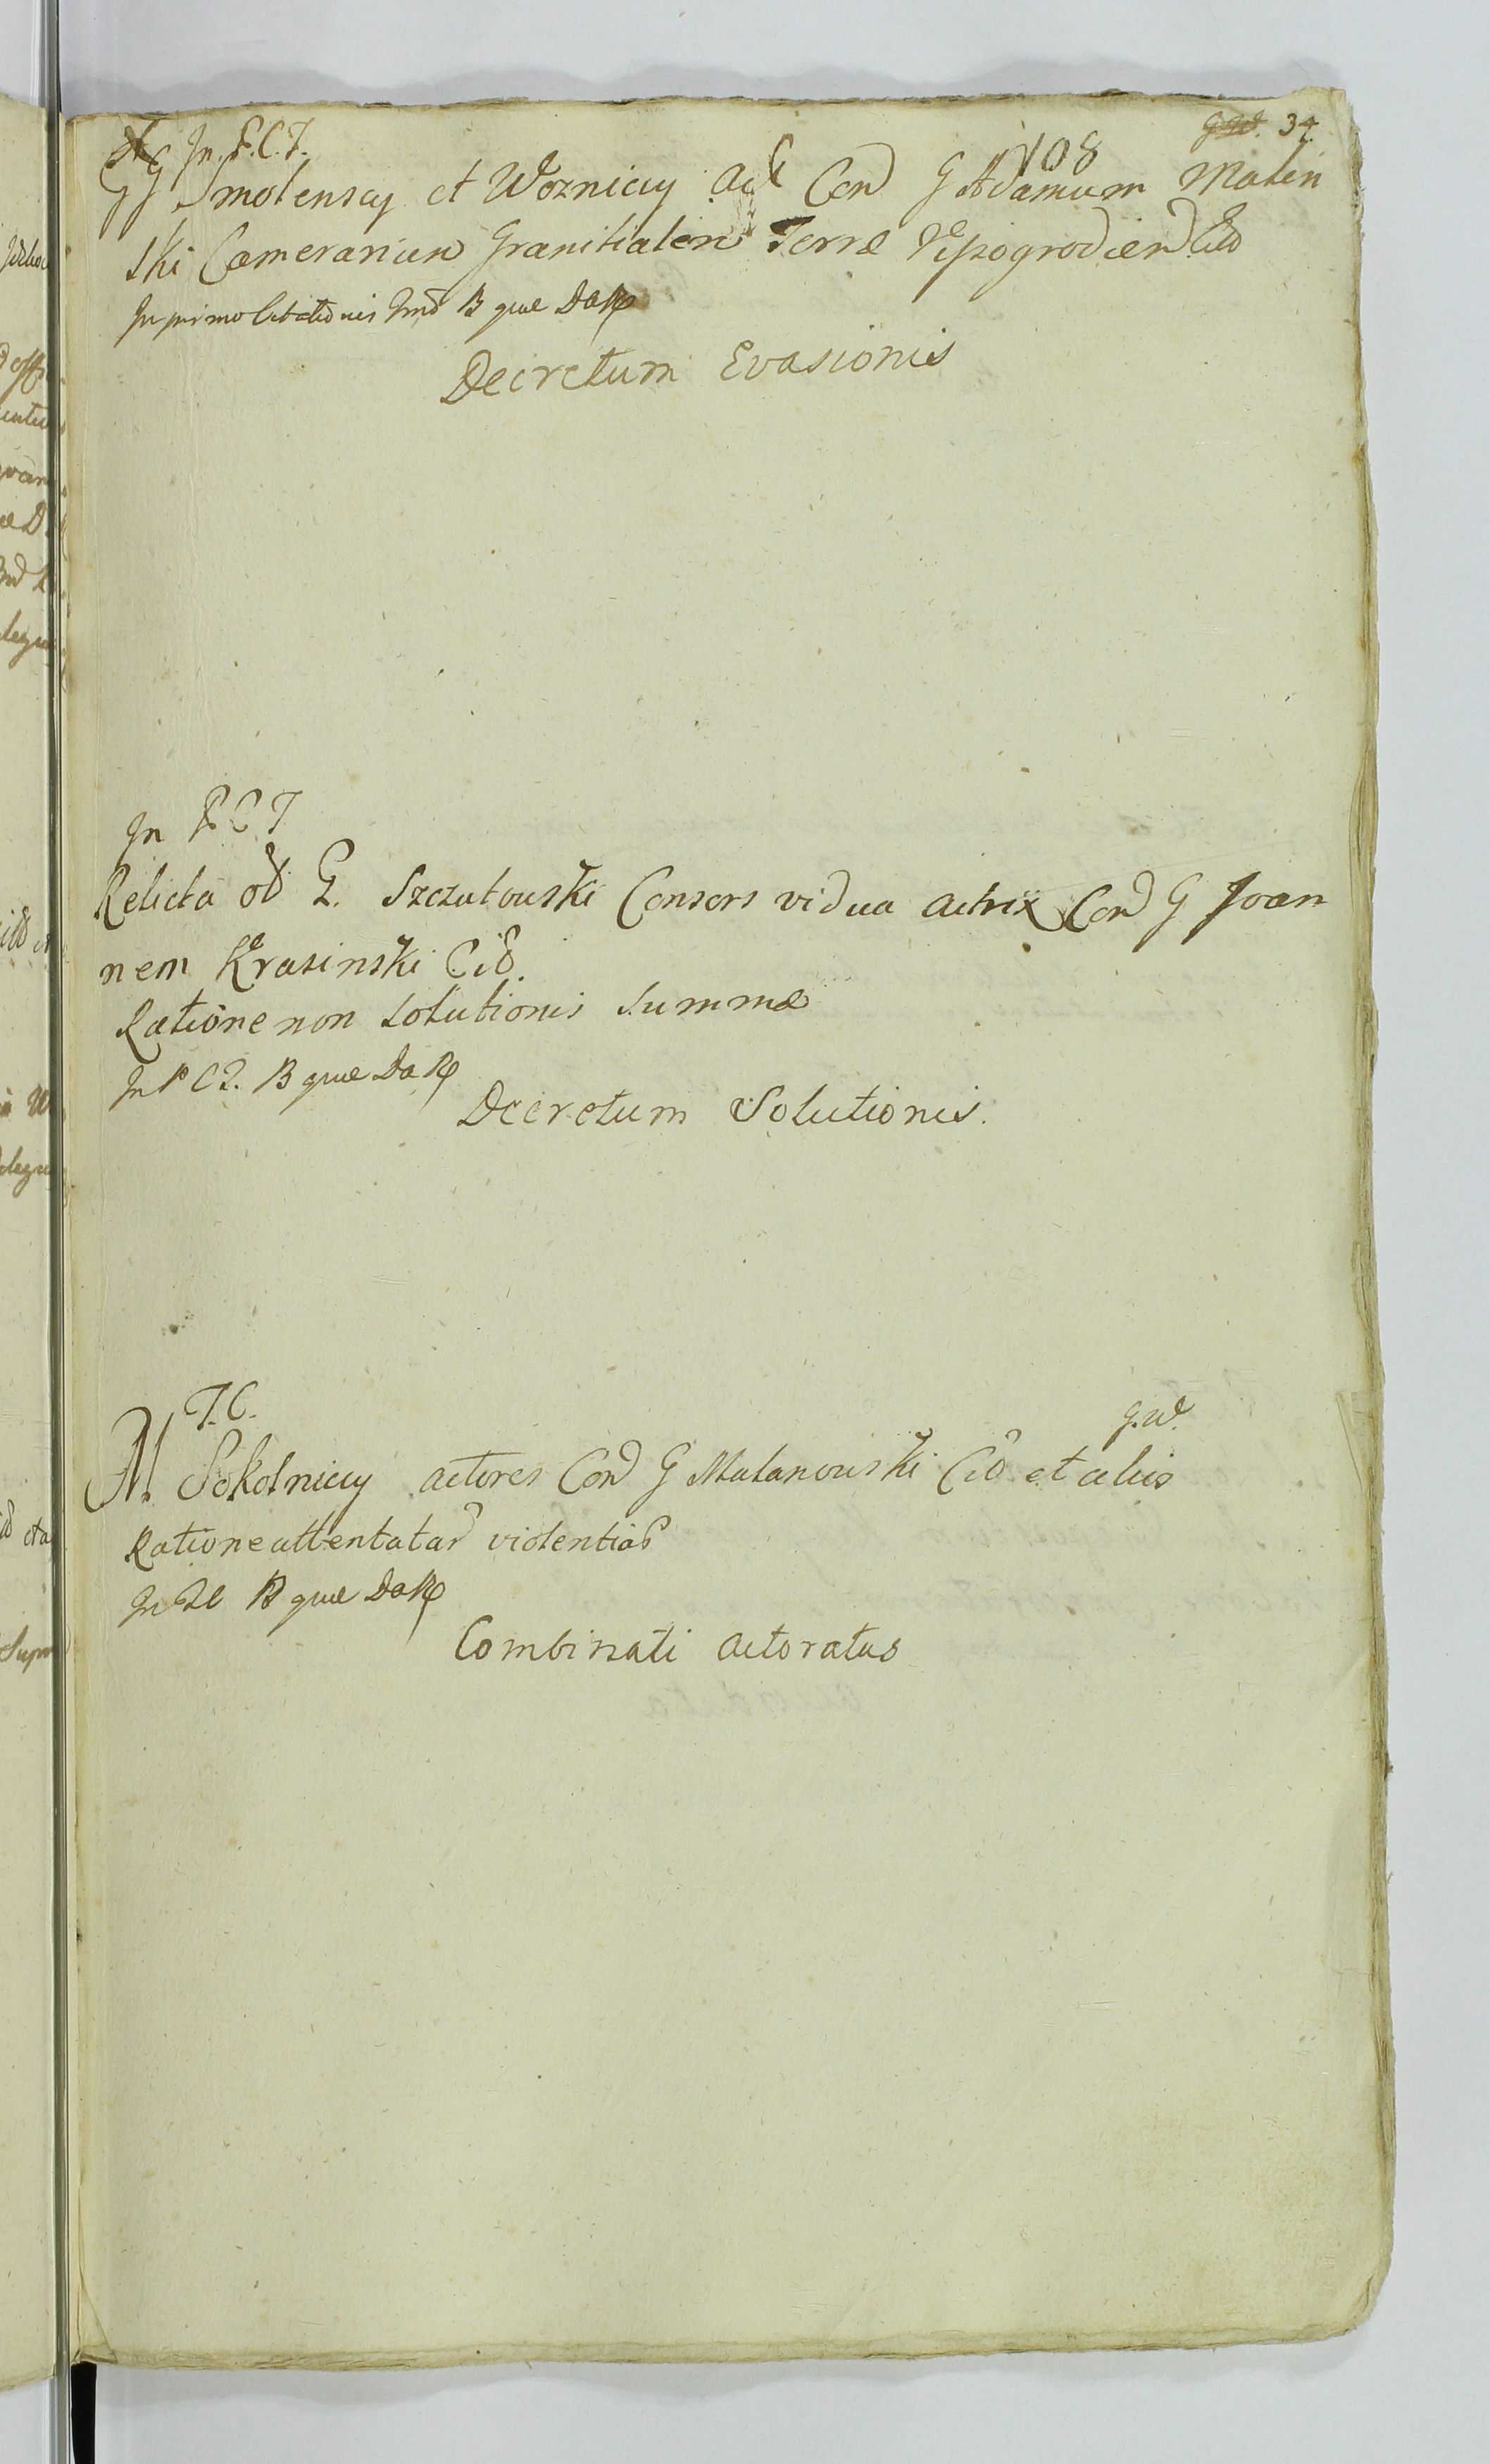 g.W. 34
108
In. P.C.T.
GG Smolenscy et Wozniccy Act Con G Adamum Malin
ski Camerarium Granitialem Terræ Vyszogrodien Cito
In primo Citationis Tmo B quæ Da Rp
Decretum Evasionis
In P C T
Relicta od G. Szczutouski Consors vidua actrix Con G Joan
nem Krasinski Cito.
Ratione non solutionis summæ
In P C T. B quæ Da Rp
Decretum Solutionis.
T.C.
g.W.
M. Sokolniccy actores Con G Malanouski Cito et aliis
Ratione attentatar violentiar
In T C B quæ Da Rp
Combinati actoratus